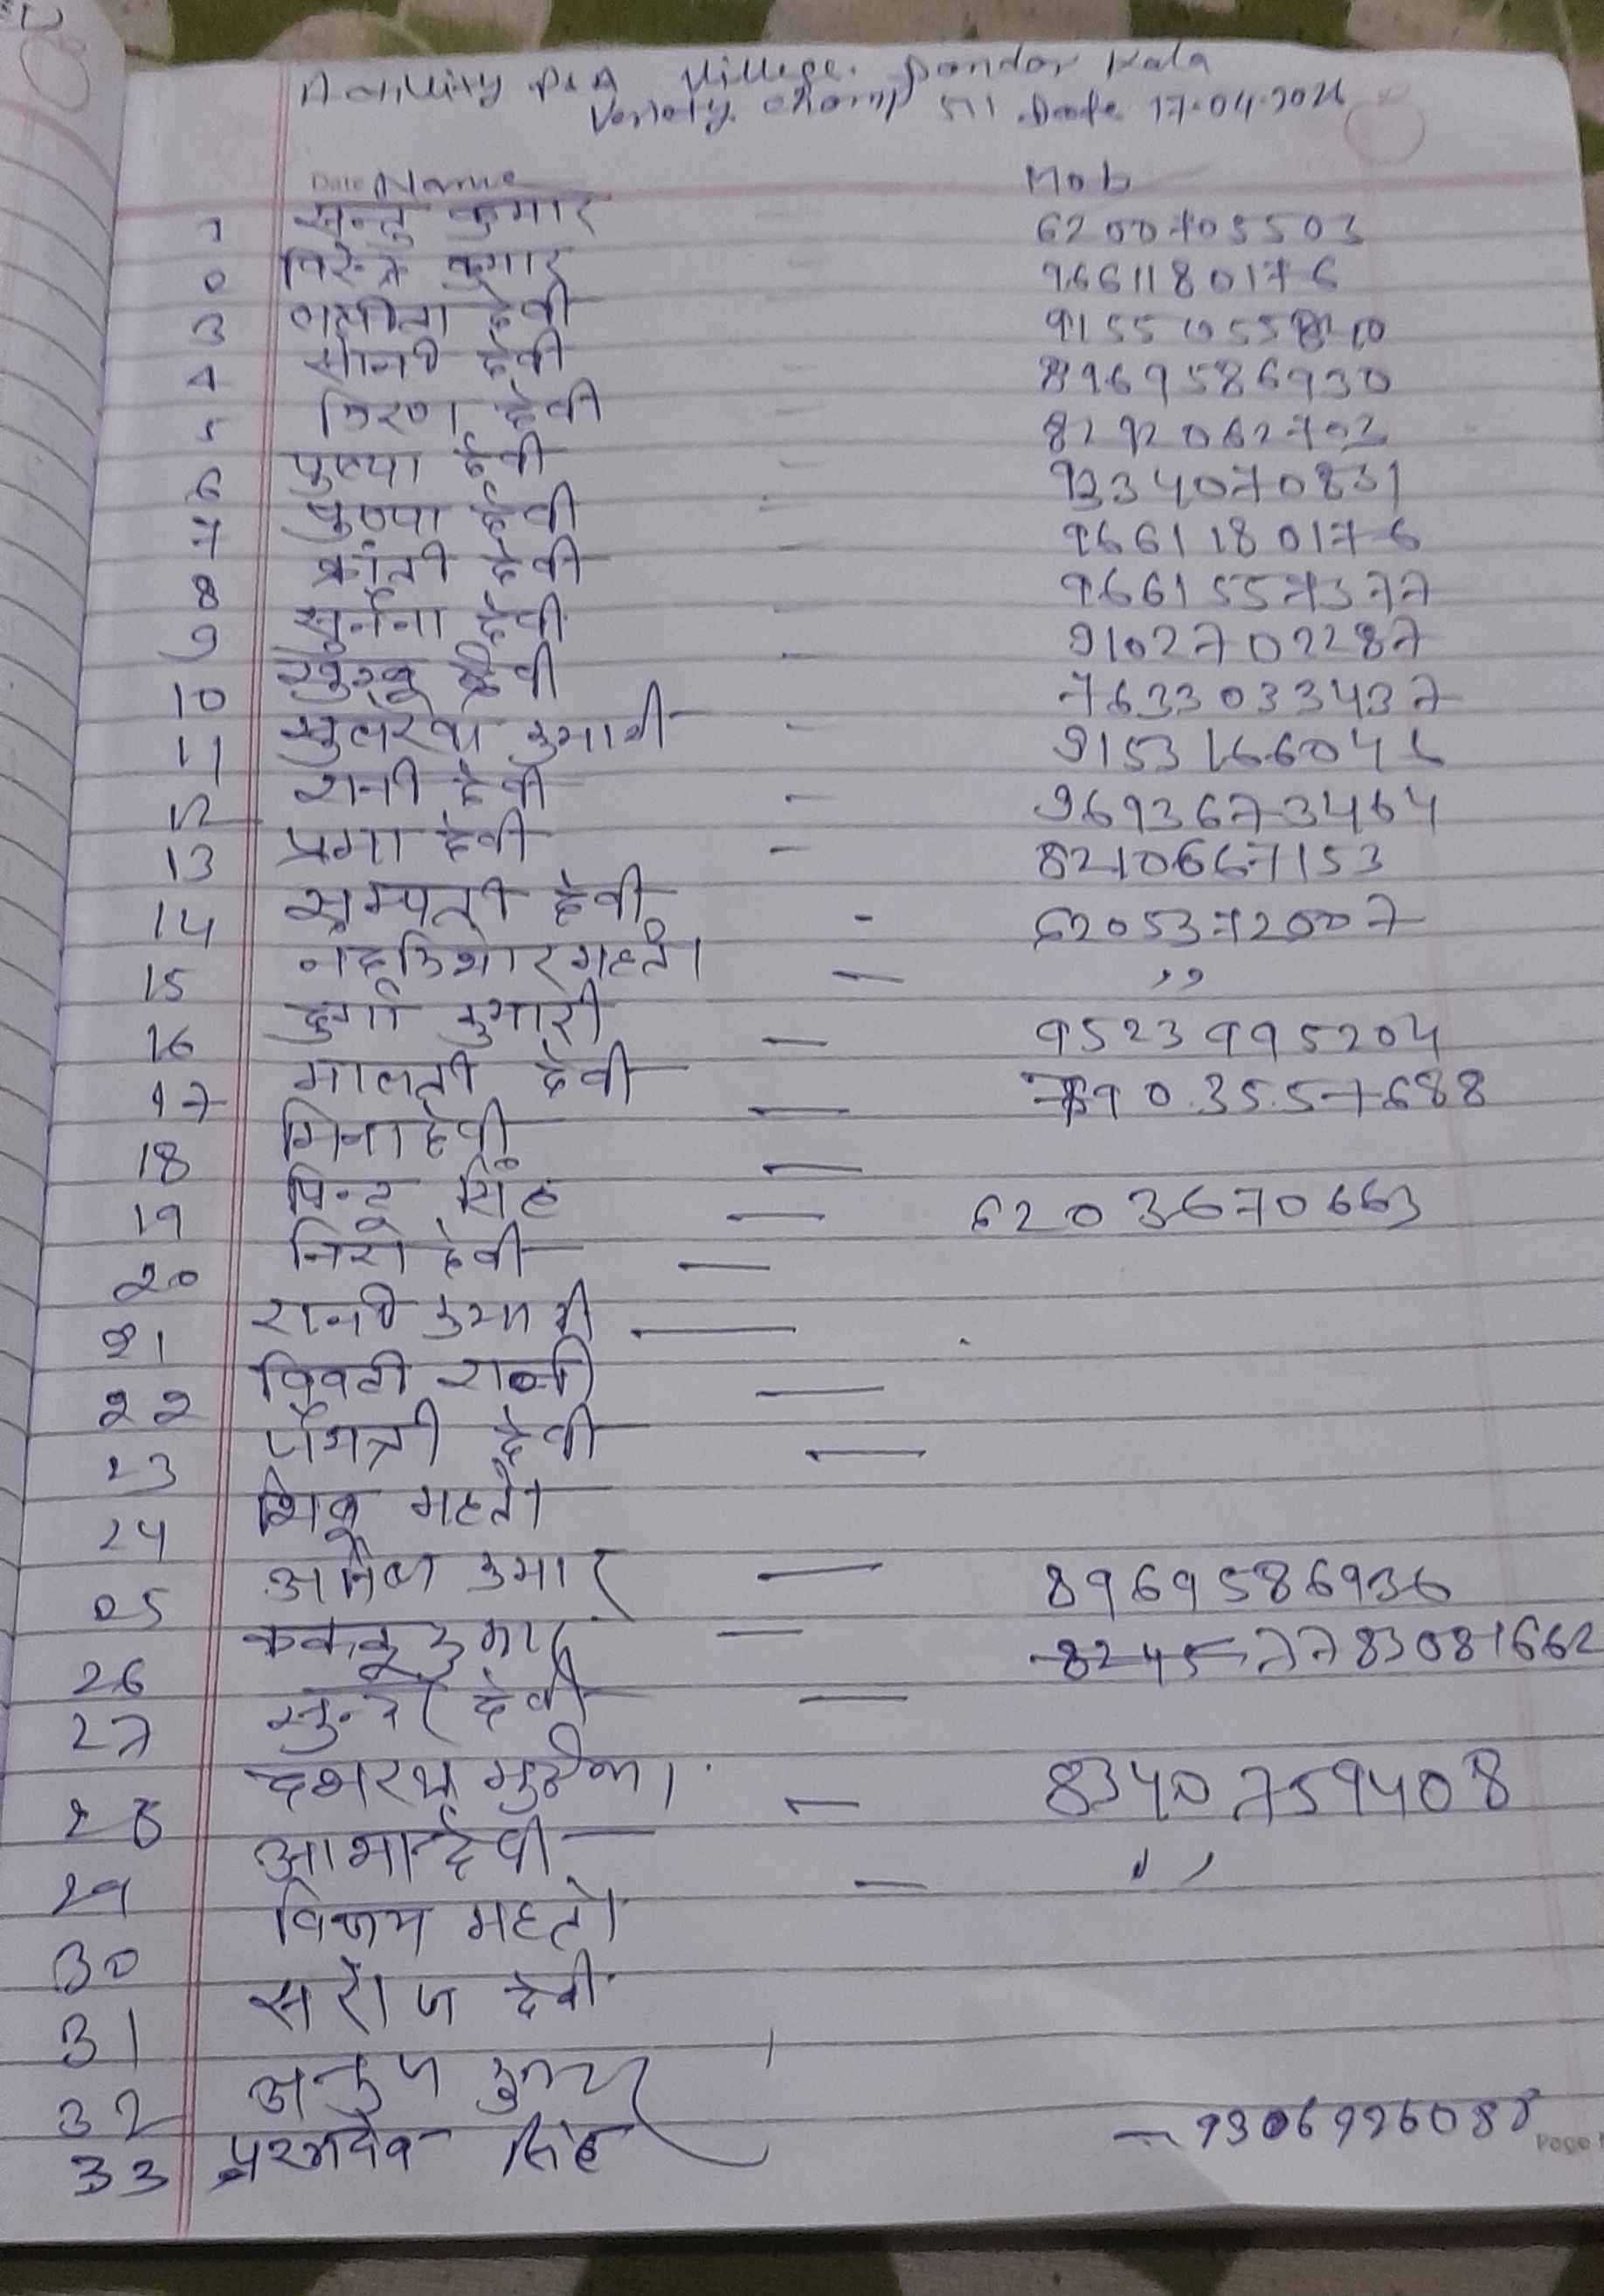 Activity Village. Dandar Kala
Variety. Champ 511 Date 17-04-2026
Date Name Mob
1 सन्टु कुमार 6200705503
2 कुमार 9661180176
3 देवी
4 सोनी देवी 8969586930
5 किरण देवी 8292062702
6 पुष्पा देवी 9334070831
7 पुष्पा देवी 9661180176
8 क्रांती देवी 9661557377
9 सुनैना देवी 9102702287
10 देवी 7633033437
11 सुलेखा कुमारी 9153166046
12 रानी देवी 9693673464
13 प्रभा देवी 8210667153
14 सम्पती देवी - 6205372007
15 नंदकिशोर महतो — ,,
16 दुर्गा कुमारी — 9523995204
17 मालती देवी — 7903557688
18 मिना देवी —
19 पिन्टू सिंह — 6203670663
20 निरा देवी —
21 रानी कुमारी —
22 रानी —
23 देवी —
24 महतो
25 अनिल कुमार — 8969586936
26 कुमार — 7783081662
27 देवी —
28 दशरथ — 8340759408
29 आभा देवी — ,,
30 विजय महतो
31 सरोज देवी
32 अनुज कुमार
33 सिंह — 9306996088
Page